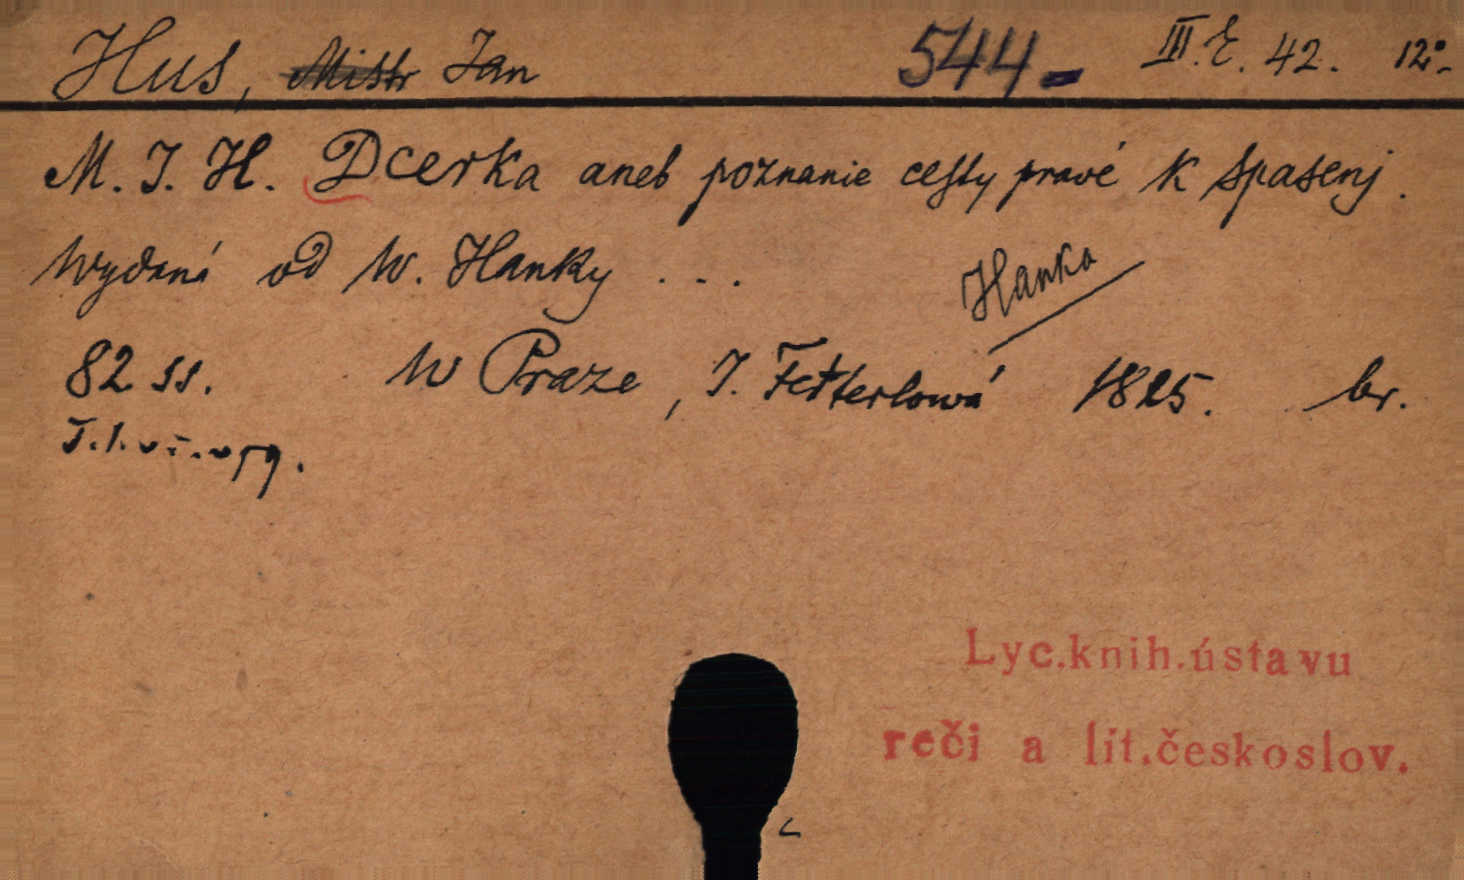 Hus, Mistr Jan 544- III.E.42. 12°.
M. J. H. Dcerka aneb poznanie cesty pravé k spasenj.
Wydaná od W. Hanky ...
Hanka
82 ss. W Praze, J. Fetterlowá 1825. br.
Lyc.knih.ústavu
reči a lit.českoslov.